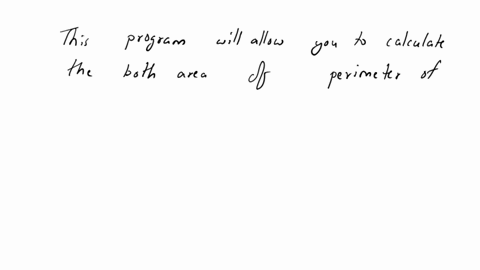 This program will allow you to calculate
the both area & perimeter of